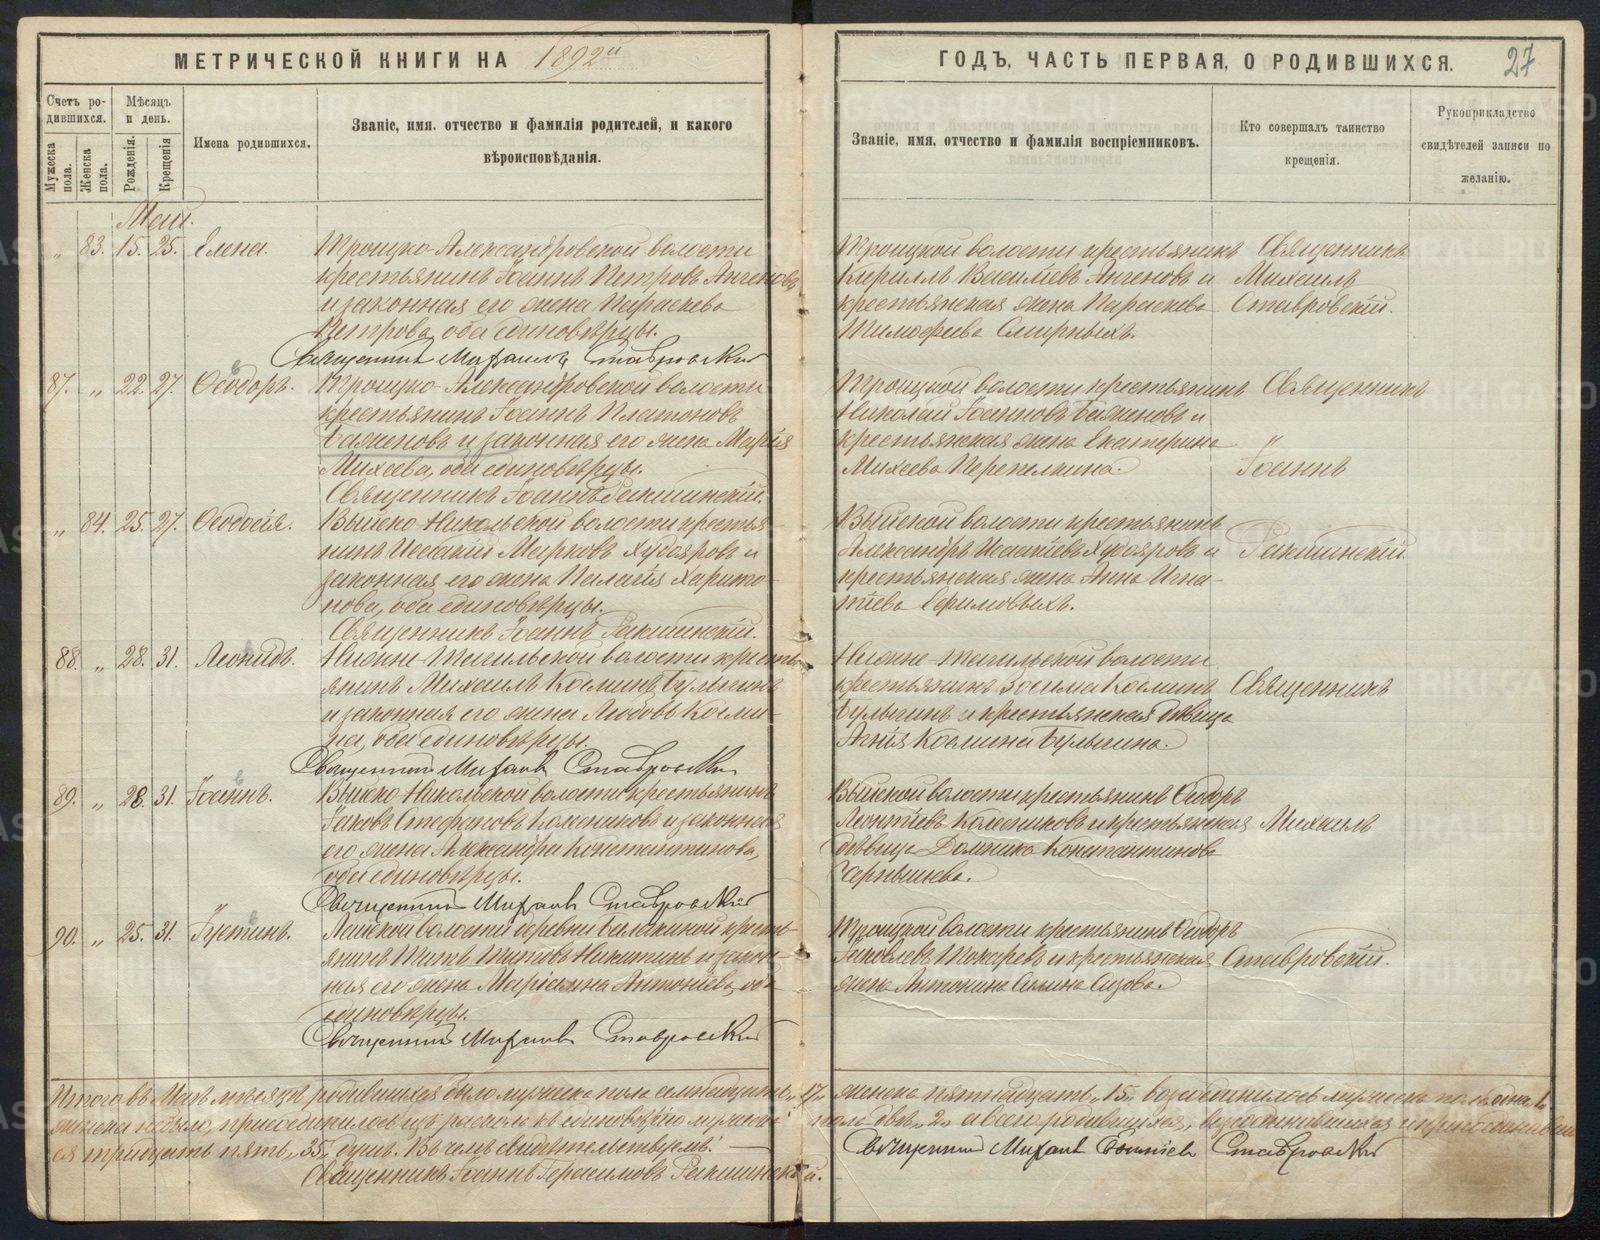 МЕТРИЧЕСКОЙ КНИГИ НА 1892й
ГОДЪ, ЧАСТЬ ПЕРВАЯ, О РОДИВШИХСЯ. 27
Счетъ родившихся.
Мужеска пола.
Женска пола.
Мѣсяцъ и день.
Рожденія.
Крещенія
Имена родившихся.
Званіе, имя, отчество и фамилія родителей, и какого
вѣроисповѣданія.
Званіе, имя, отчество и фамилія воспріемниковъ.
Кто совершалъ таинство
крещенія.
Рукоприкладство
свидѣтелей записи по
желанію.
Май.
„ 83. 15. 25. Елена.
Троицко-Александровской волости
крестьянинъ Іоаннъ Петровъ
и законная его жена Параскева
Петрова, оба единовѣрцы.
Священникъ Михаилъ Ставровскій
Троицкой волости крестьянинъ
Кириллъ Васильевъ и
крестьянская жена Параскева
Тимофеева Смирныхъ.
Священникъ
Михаилъ
Ставровскій.
87. „ 22. 27. Ѳеодоръ.
Троицко-Александровской волости
крестьянинъ Іоаннъ Платоновъ
Баженовъ и законная его жена Марія
Михеева, оба единовѣрцы.
Священникъ Іоаннъ
Троицкой волости крестьянинъ
Николай Іоанновъ Баженовъ и
крестьянская жена Екатерина
Михеева Перепелкина.
Священникъ
„
Іоаннъ
„ 84. 25. 27. Ѳеодосія.
Выйско-Никольской волости крестья-
нинъ Исаакій Марковъ Худояровъ и
законная его жена Пелагія Харито-
нова, оба единовѣрцы.
Священникъ Іоаннъ
Выйской волости крестьянинъ
Александръ Исаакіевъ Худояровъ и
крестьянская жена Анна Игна-
тіева Ефимовыхъ.
88. „ 28. 31. Леонидъ.
Нижне-Тагильской волости кресть-
янинъ Михаилъ Косминъ Булыгинъ
и законная его жена Любовь Косми-
на, оба единовѣрцы.
Священникъ Михаилъ Ставровскій
Нижне-Тагильской волости
крестьянинъ Зосима Косминъ
Булыгинъ и крестьянская дѣвица
Агнія Космина Булыгина.
Священникъ
89. „ 28. 31. Іоаннъ.
Выйско-Никольской волости крестьянинъ
Іаковъ Стефановъ Колесниковъ и законная
его жена Александра Константинова,
оба единовѣрцы.
Священникъ Михаилъ Ставровскій
Выйской волости крестьянинъ Ѳеодоръ
Леонтіевъ Колесниковъ и крестьянская
дѣвица Домника Константинова
Чернышева.
Михаилъ
90. „ 25. 31. Іустинъ.
Лайской волости деревни Балакиной кресть-
янинъ Титъ Титовъ Никитинъ и закон-
ная его жена Маріанна Антоніева, оба
единовѣрцы.
Священникъ Михаилъ Ставровскій
Троицкой волости крестьянинъ Ѳеодоръ
Іаковлевъ Токаревъ и крестьянская
жена Антонина
Ставровскій.
Итого въ Маѣ мѣсяцѣ родившихся было мужеска пола семнадцать „17„ женска пятнадцать „15„ возсоединилось мужеска пола одна 1,
женска небыло, присоединилось изъ раскола къ единовѣрію мужеска пола двѣ „2„ а всего родившихся, возсоединившихся и присоединивших-
ся тридцать пять „35„ душъ. Въ семъ свидѣтельствуемъ:
Священникъ Михаилъ Ставровскій
Священникъ Іоаннъ Герасимовъ
METRIKI.GASO-URAL.RU